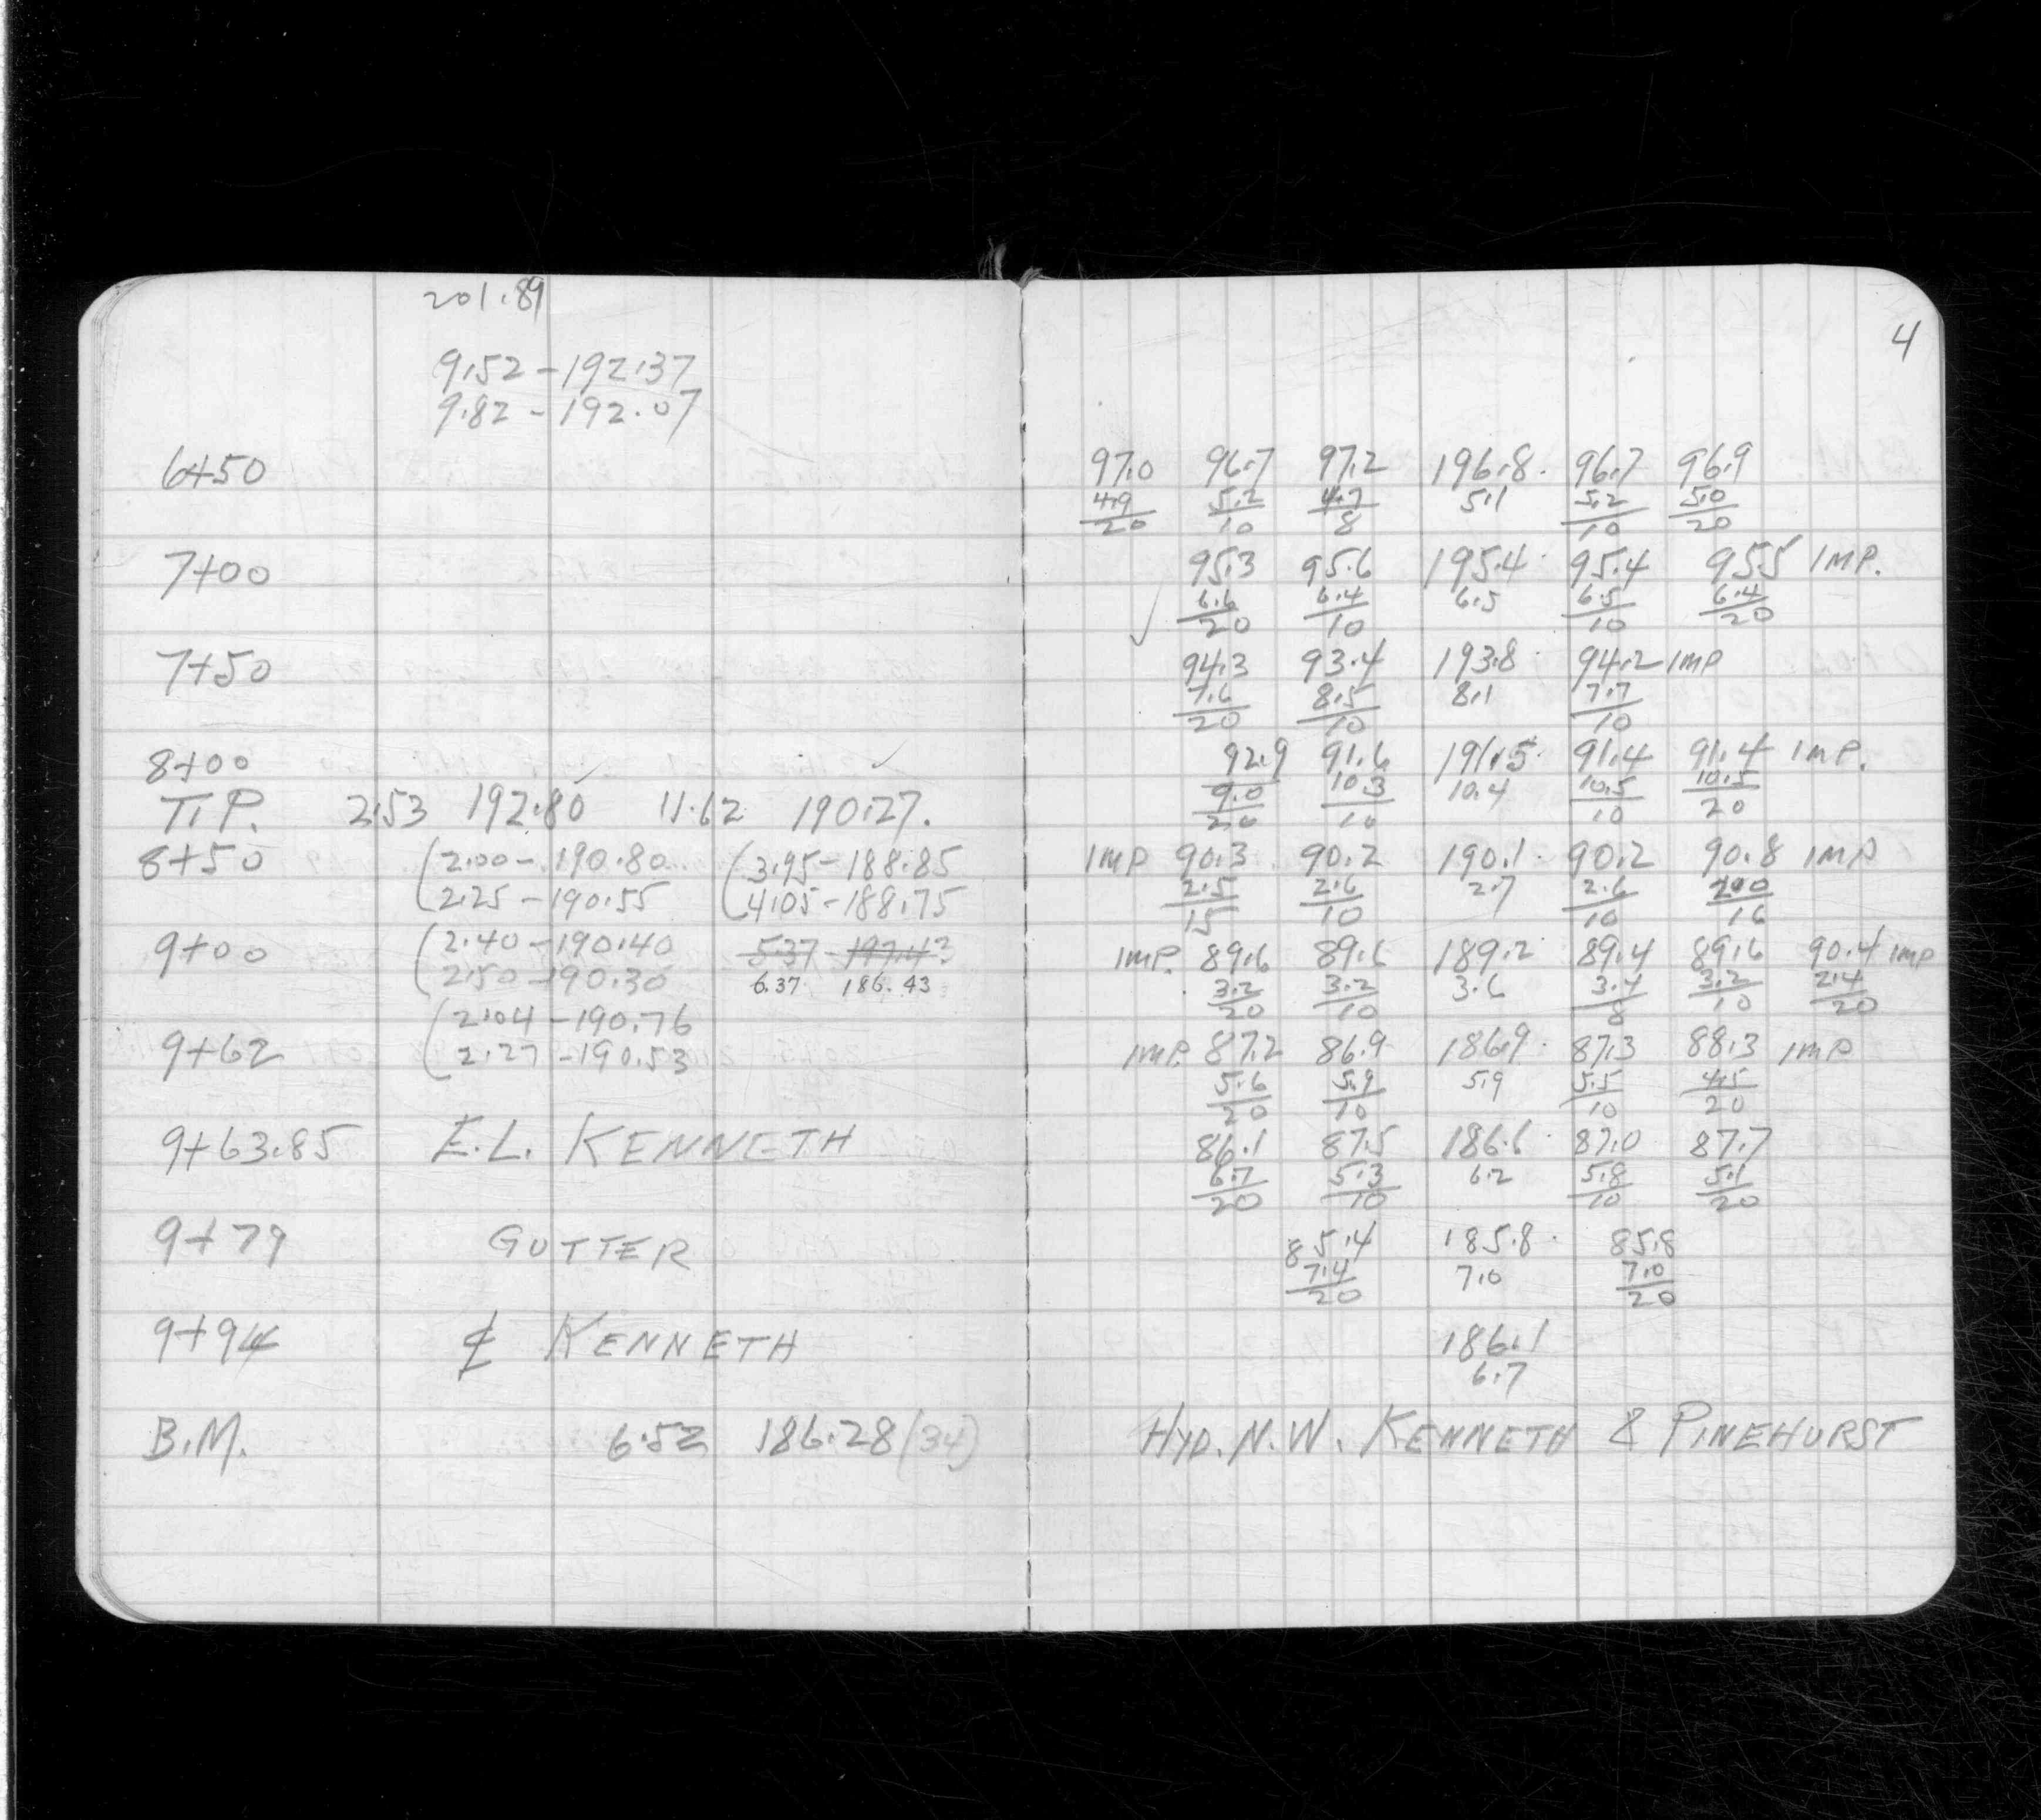 201.89
9.52 - 192.37
9.82 - 192.07
6+50
7+00
7+50
8+00
T.P. 2.53 192.80 11.62 190.27.
8+50 (2.00 - 190.80 (3.95 - 188.85
(2.25 - 190.55 (4.05 - 188.75
9+00 (2.40 - 190.40 5.37 - 197.43
(2.50 - 190.30 6.37 186.43
(2.04 - 190.76
9+62 (2.27 - 190.53
9+63.85 E.L. KENNETH
9+79 GUTTER
9+94 ℄ KENNETH
B.M. 6.52 186.28 (34)
4
97.0 96.7 97.2 196.8 96.7 96.9
4.9 5.2 4.7 5.1 5.2 5.0
20 10 8 10 20
95.3 95.6 195.4 95.4 95.5 IMP.
6.6 6.4 6.5 6.5 6.4
20 10 10 20
94.3 93.4 193.8 94.2 IMP
7.6 8.5 8.1 7.7
20 10 10
92.9 91.6 191.5 91.4 91.4 IMP.
9.0 10.3 10.4 10.5 10.5
20 10 10 20
IMP 90.3 90.2 190.1 90.2 90.8 IMP
2.5 2.6 2.7 2.6 2.0
15 10 10 16
IMP. 89.6 89.6 189.2 89.4 89.6 90.4 IMP
3.2 3.2 3.6 3.4 3.2 2.4
20 10 8 10 20
IMP. 87.2 86.9 186.9 87.3 88.3 IMP
5.6 5.9 5.9 5.5 4.5
20 10 10 20
86.1 87.5 186.6 87.0 87.7
6.7 5.3 6.2 5.8 5.1
20 10 10 20
85.4 185.8 85.8
7.4 7.0 7.0
20 20
186.1
6.7
HYD. N.W. KENNETH & PINEHURST